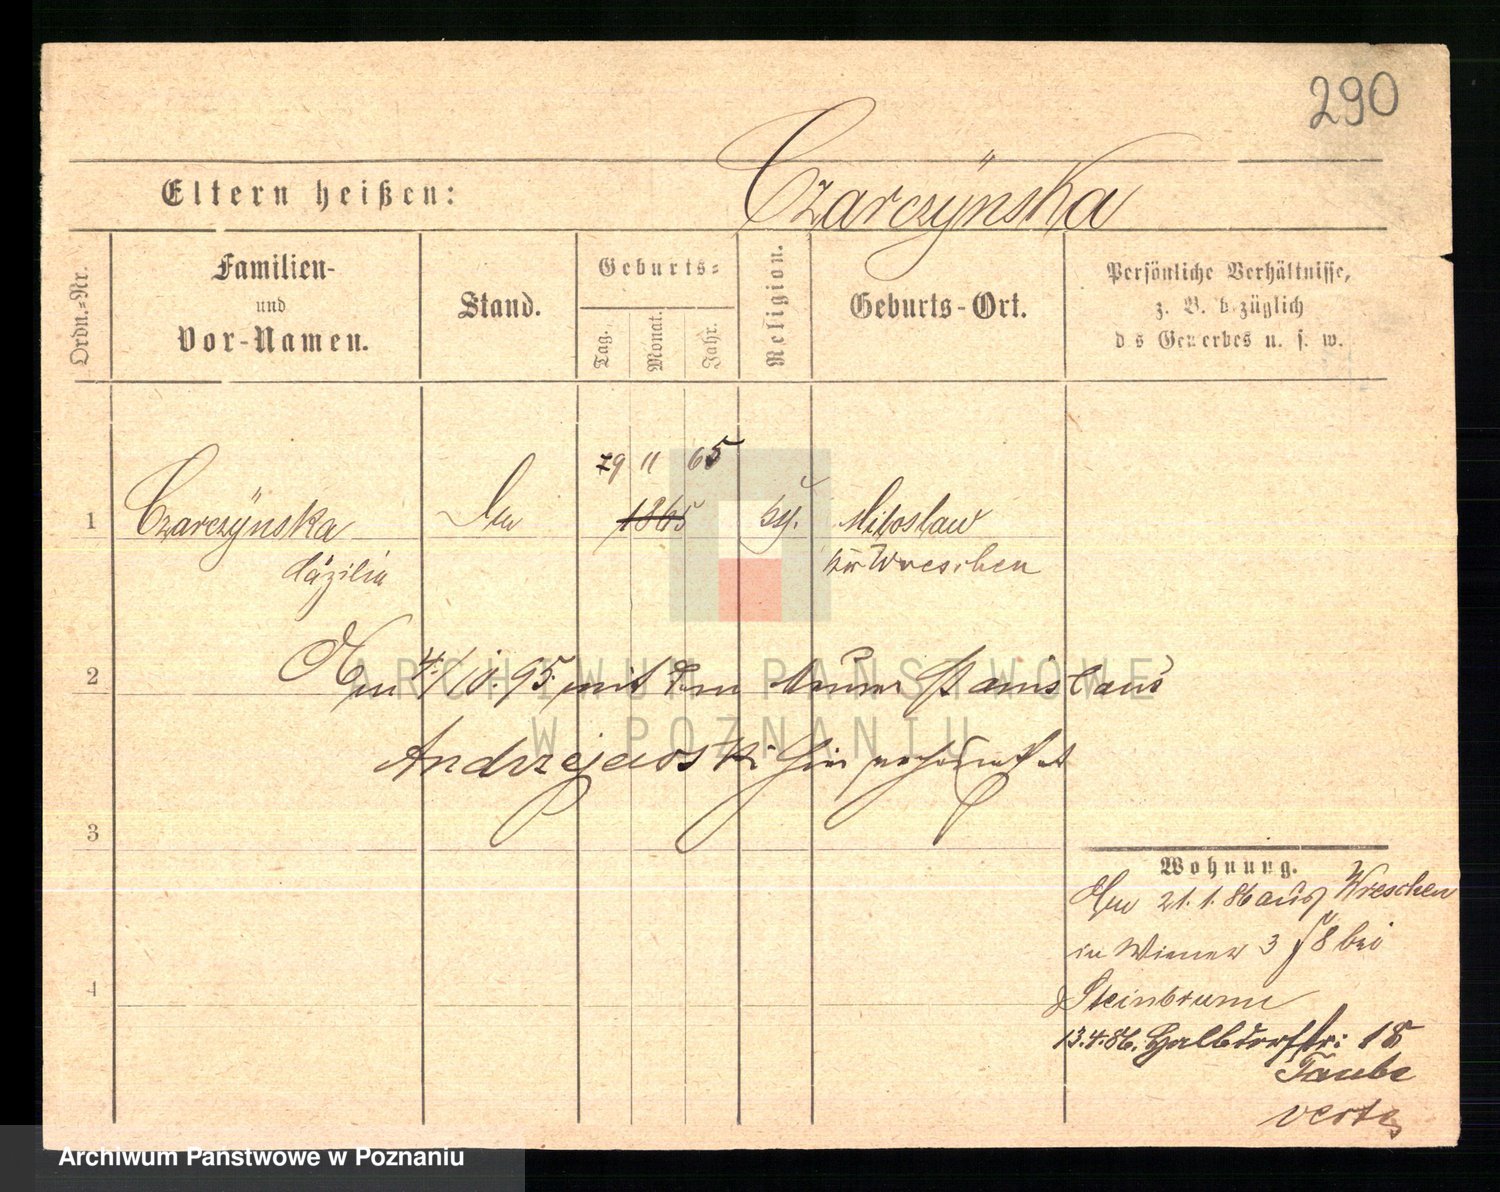 290
Czarczÿnska
Eltern heißen:
Ordn.-Nr.
Familien-
und
Vor-Namen.
Stand.
Geburts-
Tag.
Monat.
Jahr.
Religion.
Geburts-Ort.
Persönliche Verhältnisse,
z. B. bezüglich
des Gewerbes u. s. w.
29 11 65
1 Czarczÿnska 1865 Miloslaw
Cäzilia Kr Wreschen
2 Am 4/10.95 mit dem Stanislaus
ARCHIWUM PAŃSTWOWE
W POZNANIU
Andrzejewski hier
3
Wohnung.
Am 21.1.86 aus Wreschen
in Wiener 3 bei
4 Steinbrunn
13.4.86. Halbdorfstr: 18
Taube
verte
Archiwum Państwowe w Poznaniu